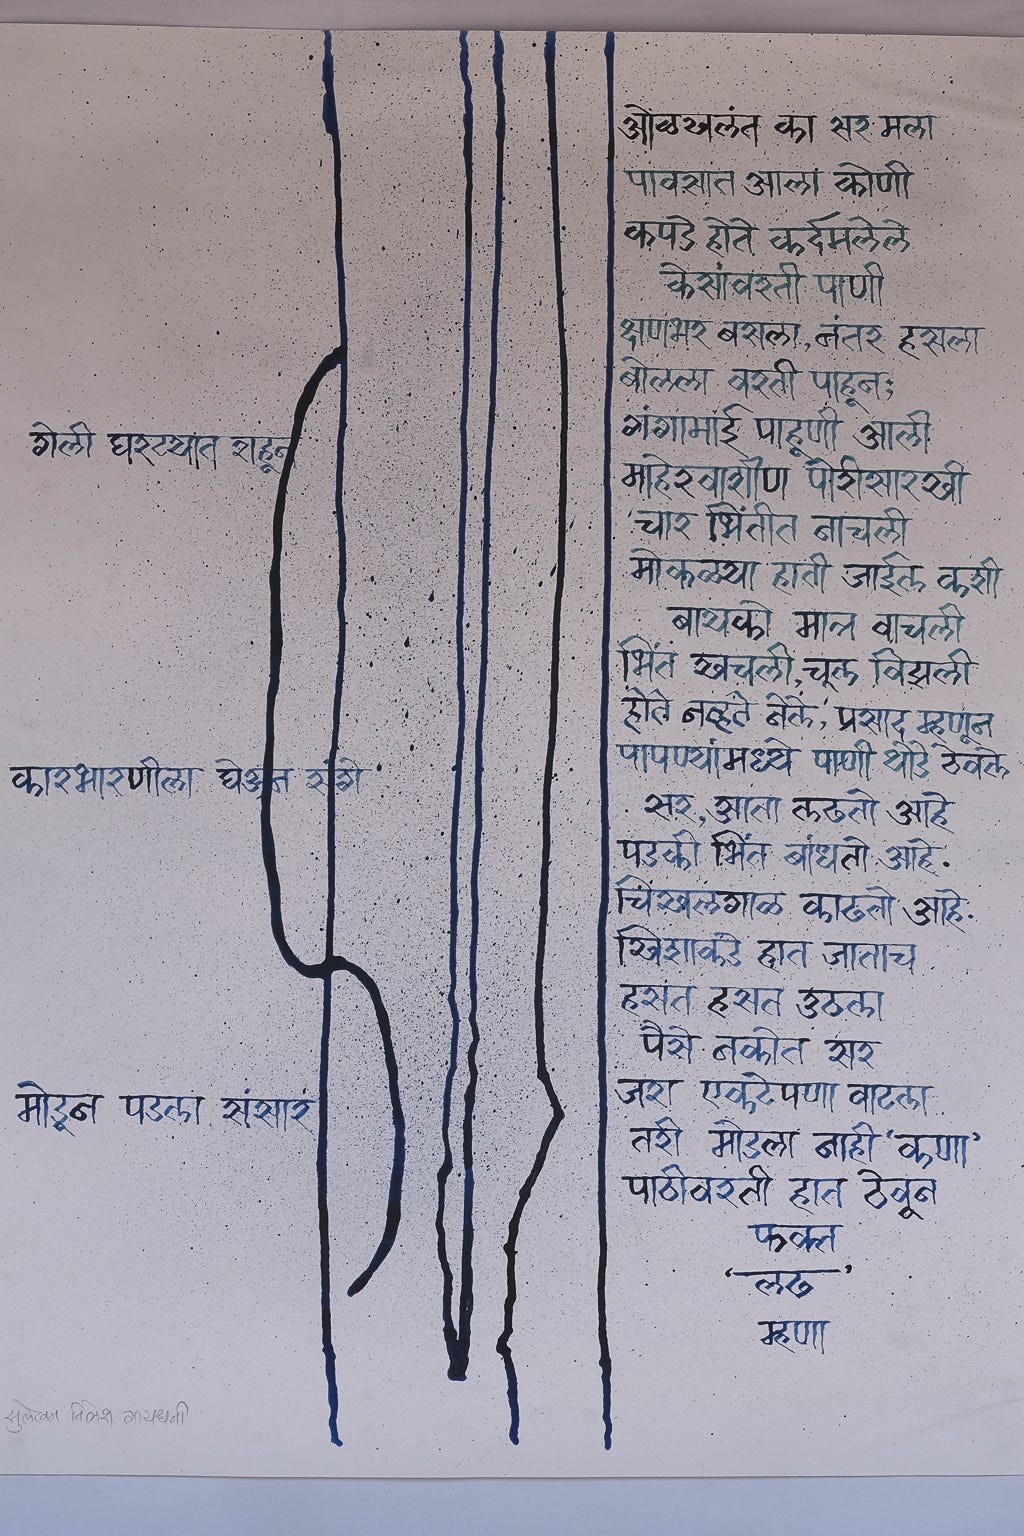 ओळखलंत का सर मला
पावसात आला कोणी
कपडे होते कर्दमलेले
केसांवरती पाणी
क्षणभर बसला, नंतर हसला
बोलला वरती पाहून;
गंगामाई पाहूणी आली
गेली घरट्यात राहून
माहेरवाशीण पोरीसारखी
चार भिंतीत नाचली
मोकळ्या हाती जाईल कशी
बायको मात्र वाचली
भिंत खचली, चूल विझली
होते नव्हते नेले, प्रसाद म्हणून
पापण्यांमध्ये पाणी थोडे ठेवले
कारभारणीला घेऊन संगे
सर, आता लढतो आहे
पडकी भिंत बांधतो आहे.
चिखलगाळ काढतो आहे.
खिशाकडे हात जाताच
हसत हसत उठला
पैसे नकोत सर
जरा एकटेपणा वाटला
मोडून पडला संसार
तरी मोडला नाही 'कणा'
पाठीवरती हात ठेवून
फक्त
'लढ'
म्हणा